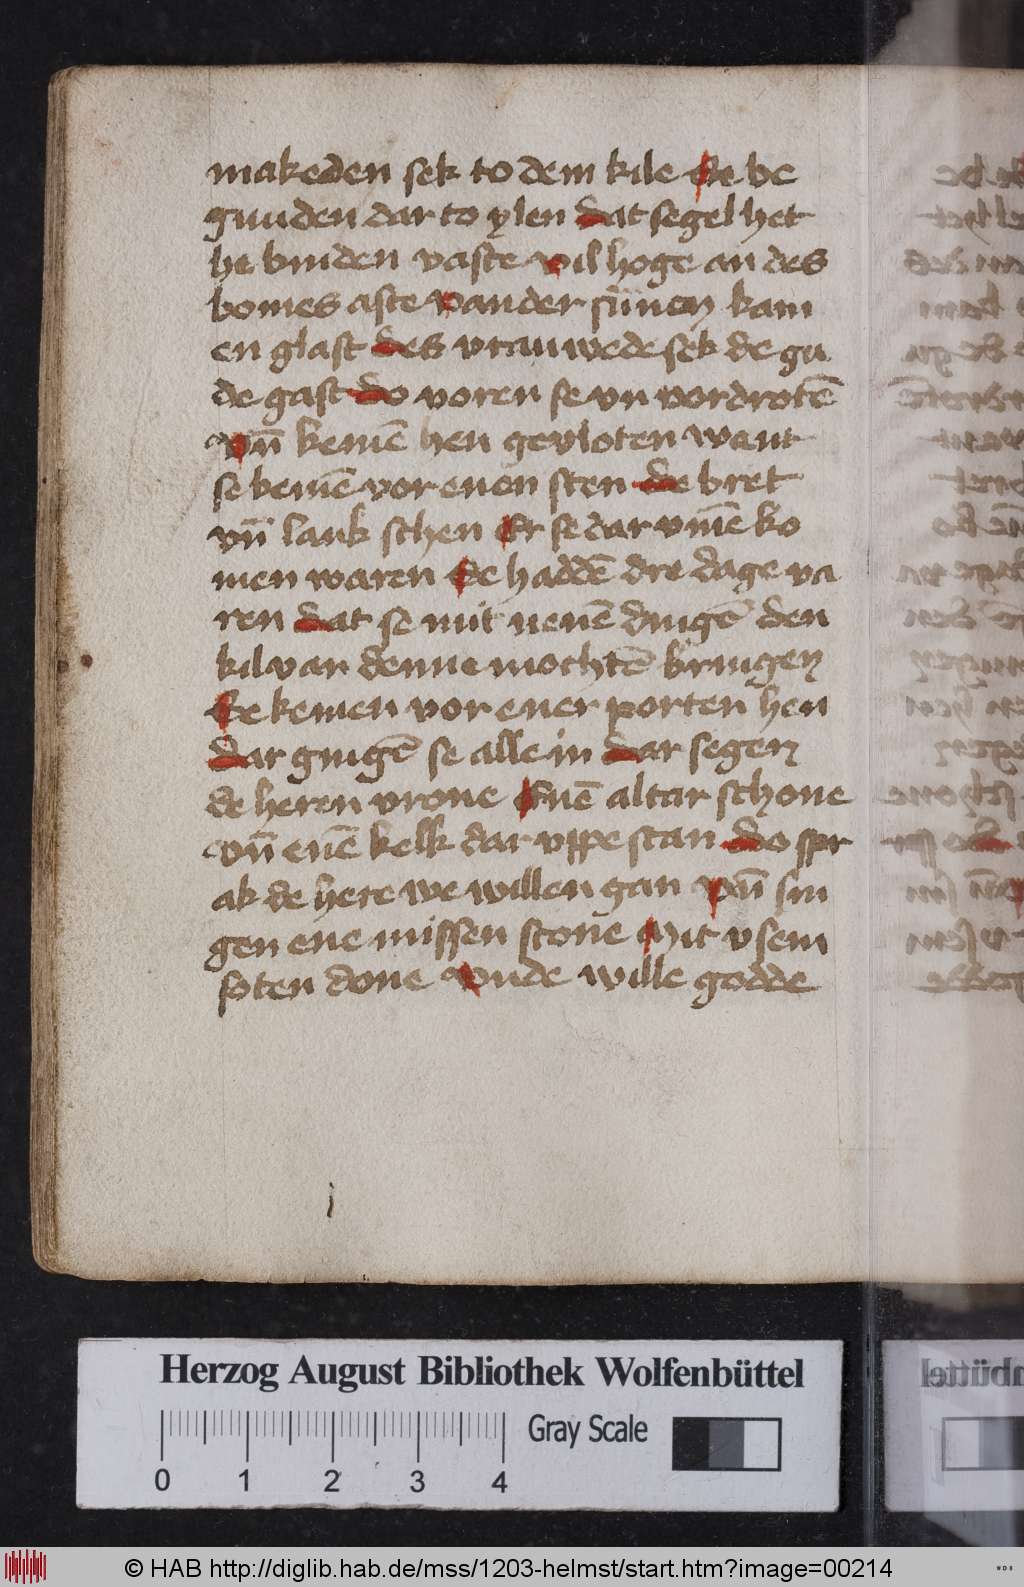 makeden sek to dem kile Se be
gunden dar to ylen dat segel het
he binden vaste vil hoge an des
bomes aste van der sunnen kam
en glast des vrauwede sek de gu
de gast do voren se vn vordrotē
vn̄ kemē hen gevloten want
se bemē vor enen sten de bret
vn̄ lank schen Er se dar vmē ko
men waren Se haddē dre dage va
ren dat se mit nenē dingē den
kil van denne mochtē bringen
Se kemen vor ener porten hen
dar gingē se alle in dar segen
de heren vrone Enē altar schone
vn̄ enē kelk dar vppe stan do spr
ak de here we willen gan vn̄ sin
gen ene missen scone Mit vsem
soten done vnde wille godde
Herzog August Bibliothek Wolfenbüttel
0 1 2 3 4 Gray Scale
© HAB http://diglib.hab.de/mss/1203-helmst/start.htm?image=00214